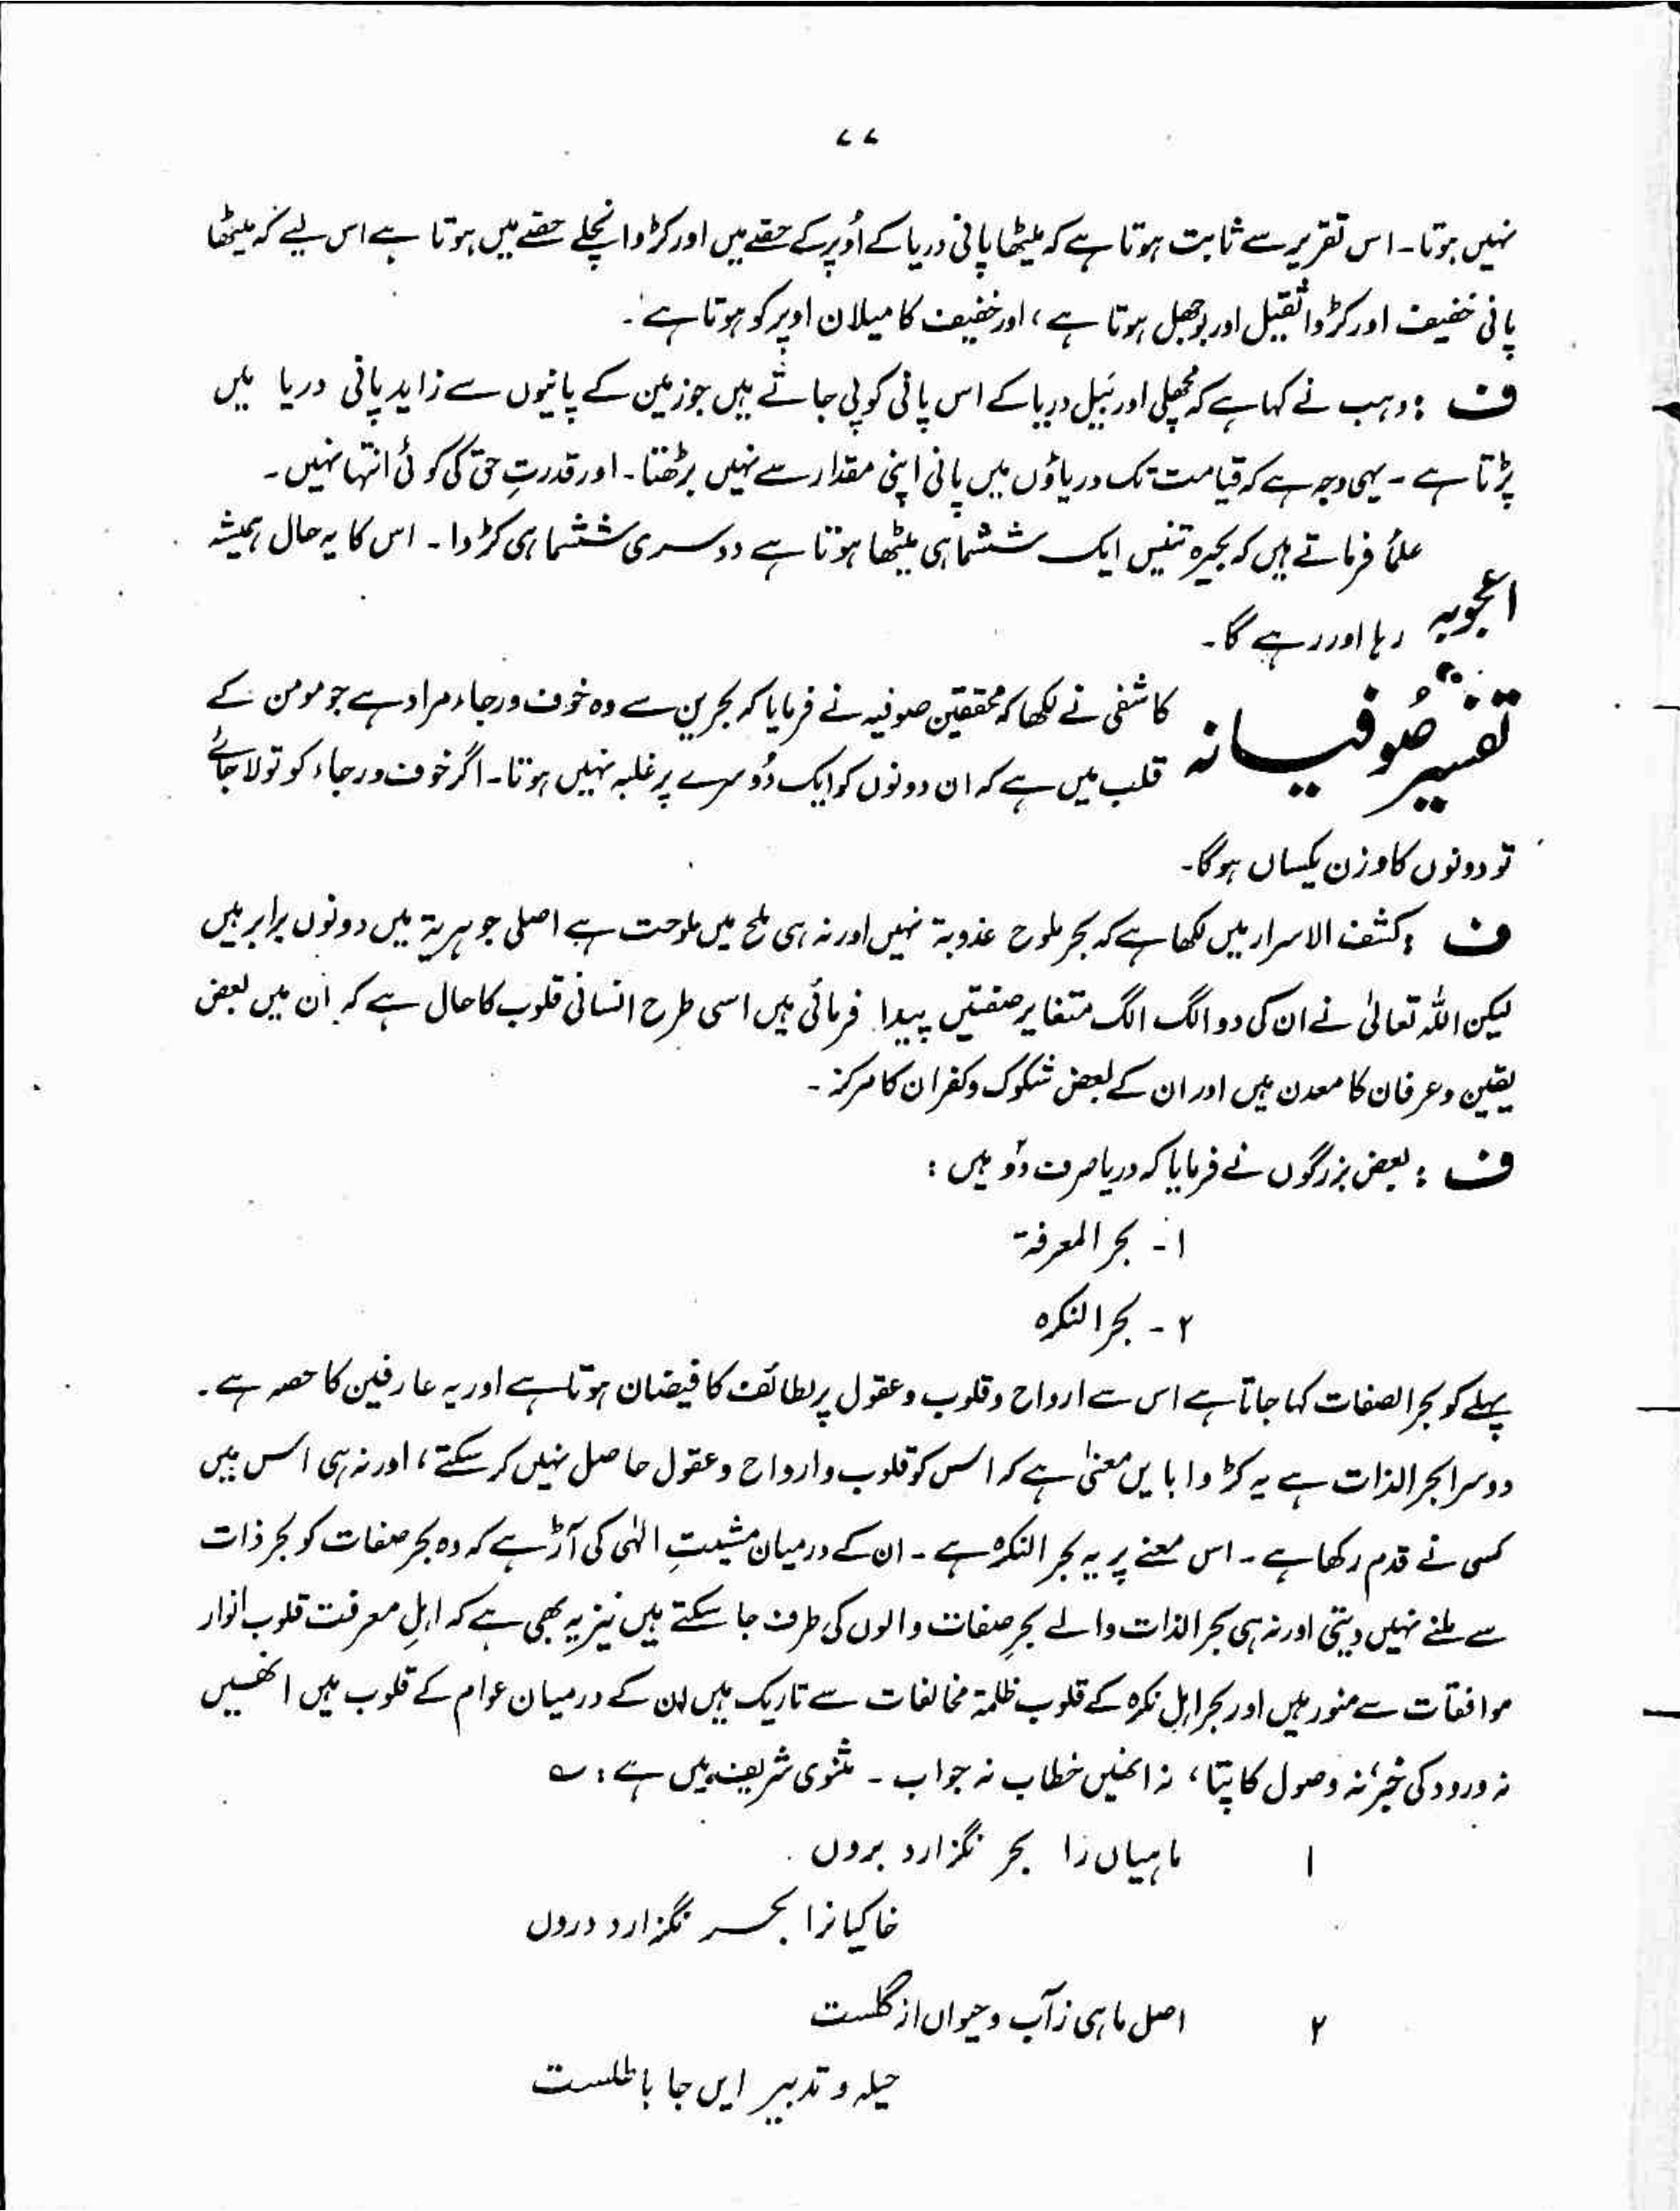 ۷۷
نہیں ہوتا۔ اس تقریر سے ثابت ہوتا ہے کہ میٹھا پانی دریا کے اُوپر کے حصّے میں اور کڑوا نچلے حصّے میں ہوتا ہے اس لیے کہ میٹھا
پانی خفیف اور کڑوا ثقیل اور بوجھل ہوتا ہے، اور خفیف کا میلان اوپر کو ہوتا ہے۔
ف : وہب نے کہا ہے کہ مچھلی اور بَیل دریا کے اس پانی کو پی جاتے ہیں جو زمین کے پانیوں سے زاید پانی دریا میں
پڑتا ہے۔ یہی وجہ ہے کہ قیامت تک دریاؤں میں پانی اپنی مقدار سے نہیں بڑھتا۔ اور قدرتِ حق کی کوئی انتہا نہیں۔
علماؑ فرماتے ہیں کہ بحیرہ تنیس ایک ششماہی میٹھا ہوتا ہے دوسری ششماہی کڑوا۔ اس کا یہ حال ہمیشہ
اعجوبہ رہا اور رہے گا۔
تفسیر صُوفیانہ کاشفی نے لکھا کہ محققین صوفیہ نے فرمایا کہ بحرین سے وہ خوف ورجاء مراد ہے جو مومن کے
قلب میں ہے کہ ان دونوں کو ایک دُوسرے پر غلبہ نہیں ہوتا۔ اگر خوف ورجاء کو تولا جائے
تو دونوں کا وزن یکساں ہوگا۔
ف : کشف الاسرار میں لکھا ہے کہ بحر ملوح عذوبۃ نہیں اور نہ ہی ملح میں ملوحت ہے اصلی جوہریۃ میں دونوں برابر ہیں
لیکن اللہ تعالیٰ نے ان کی دو الگ الگ متغایر صفتیں پیدا فرمائی ہیں اسی طرح انسانی قلوب کا حال ہے کہ ان میں بعض
یقین و عرفان کا معدن ہیں اور ان کے بعض شکوک و کفران کا مرکز۔
ف : بعض بزرگوں نے فرمایا کہ دریا صرف دوؔ ہیں :
۱۔ بحر المعرفۃ
۲۔ بحر النکرہ
پہلے کو بحر الصفات کہا جاتا ہے اس سے ارواح و قلوب و عقول پر لطائف کا فیضان ہوتا ہے اور یہ عارفین کا حصہ ہے۔
دوسرا بحر الذات ہے یہ کڑوا بایں معنیٰ ہے کہ اس کو قلوب و ارواح و عقول حاصل نہیں کر سکتے، اور نہ ہی اس میں
کسی نے قدم رکھا ہے۔ اس معنے پر یہ بحر النکرہ ہے۔ ان کے درمیان مشیتِ الٰہی کی آڑ ہے کہ وہ بحر صفات کو بحر ذات
سے ملنے نہیں دیتی اور نہ ہی بحر الذات والے بحرِ صفات والوں کی طرف جا سکتے ہیں نیز یہ بھی ہے کہ اہلِ معرفت قلوب انوار
موافقات سے منور ہیں اور بحر اہلِ نکرہ کے قلوب ظلمۃ مخالفات سے تاریک ہیں ان کے درمیان عوام کے قلوب ہیں انھیں
نہ ورود کی خبر، نہ وصول کا پتا، نہ انھیں خطاب نہ جواب۔ مثنوی شریف میں ہے : ؎
۱ ماہیاں را بحر نگزارد بروں
خاکیانرا بحر نگزارد دروں
۲ اصل ماہی ز آب و حیواں از گلست
حیلہ و تدبیر ایں جا باطلست